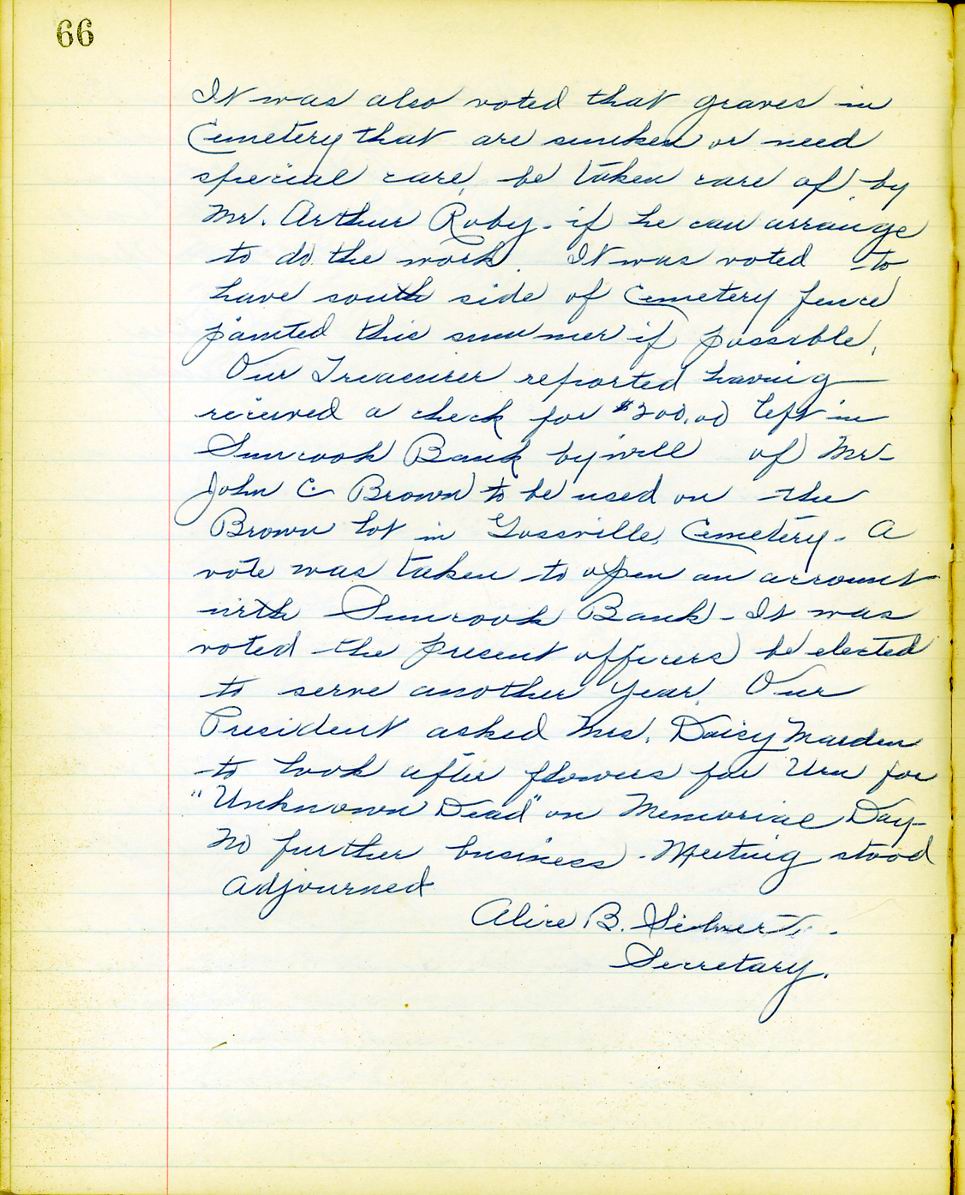 66
It was also voted that graves in
Cemetery that are sunken or need
special care, be taken care of by
Mr. Arthur Roby - if he can arrange
to do the work. It was voted to
have south side of Cemetery fence
painted this summer if possible.
Our Treasurer reported having
received a check for $200.00 left in
Suncook Bank by will of Mr.
John C. Brown to be used on the
Brown lot in Gossville Cemetery - A
vote was taken to open an account
with Suncook Bank - It was
voted the present officers be elected
to serve another year. Our
President asked Mrs. Daisy Marden
to look after flowers for Urn for
"Unknown Dead" on Memorial Day -
No further business - Meeting stood
adjourned
Alice B.
Secretary.